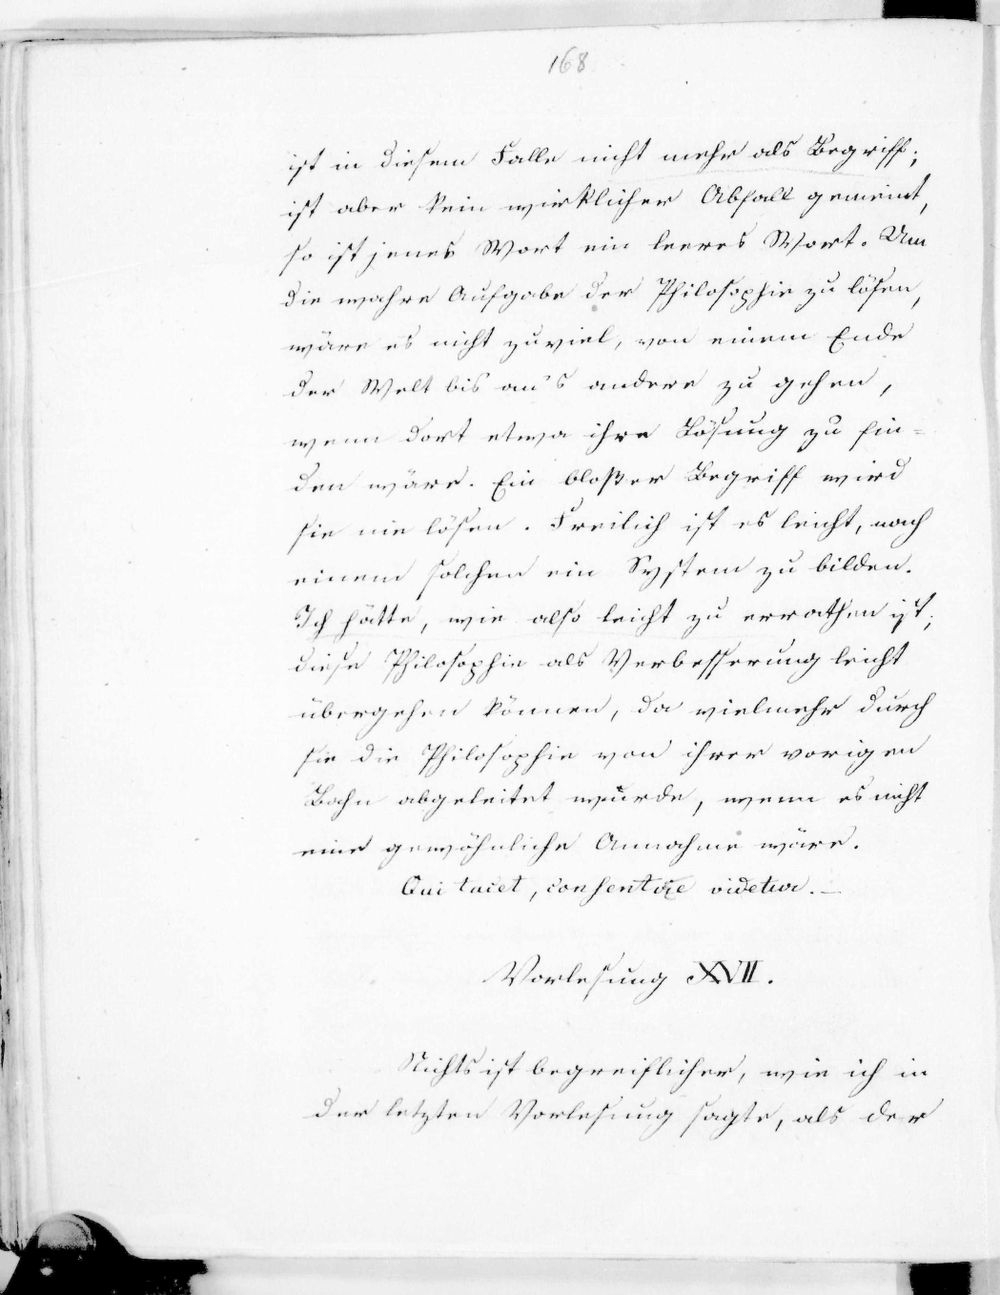 168
ist in diesem Falle nicht mehr als Begriff;
ist aber kein wirklicher Abfall gemeint,
so ist jenes Wort ein leeres Wort. Um
die wahre Aufgabe der Philosophie zu lösen,
wäre es nicht zuviel, von einem Ende
der Welt bis an's andere zu gehen,
wenn dort etwa ihre Lösung zu fin=
den wäre. Ein bloßer Begriff wird
sie nie lösen. Freilich ist es leicht, nach
einem solchen ein System zu bilden.
Ich hätte, wie also leicht zu errathen ist,
diese Philosophie als Verbesserung leicht
übergehen können, da vielmehr durch
sie die Philosophie von ihrer vorigen
Bahn abgeleitet wurde, wenn es nicht
eine gewöhnliche Annahme wäre.
Qui tacet, consentire videtur. —
Vorlesung XVII.
Nichts ist begreiflicher, wie ich in
der letzten Vorlesung sagte, als der